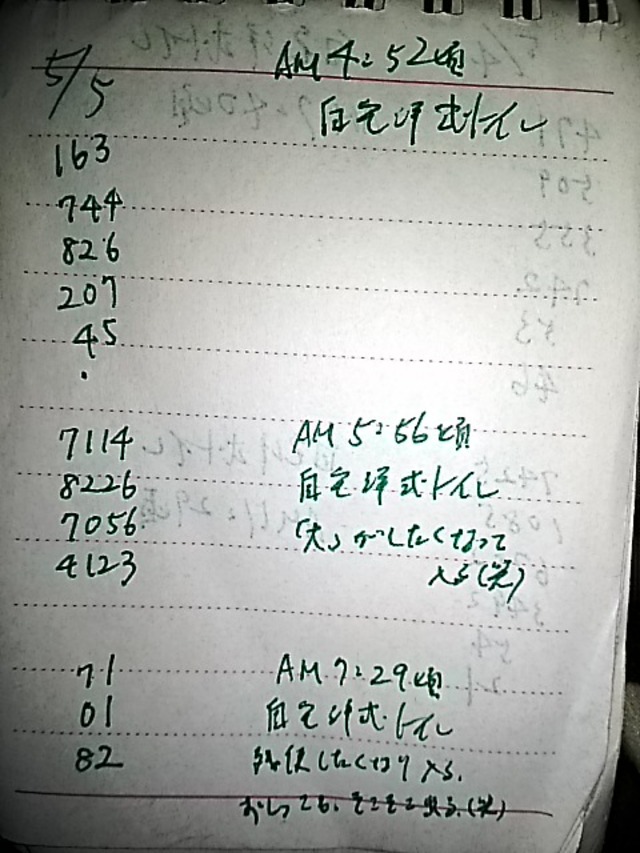 5/5
AM 4:52頃
自宅洋式トイレ
163
744
826
207
45
・
7114
AM 5:56頃
8226
自宅洋式トイレ
7056
「大」がしたくなって
4123
入る(笑)
71
AM 7:29頃
01
自宅洋式トイレ
82
したくなり入る。
おしっこも、そこそこ出る。(笑)